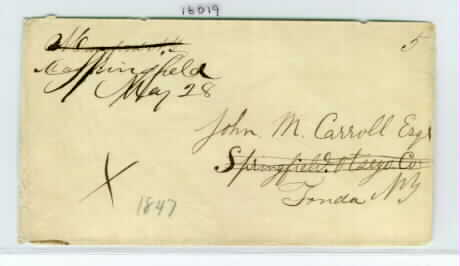 18019
5
Springfield
May 28
John M. Carroll Esqr
Springfield. Otsego Co
Fonda NY
X
1847